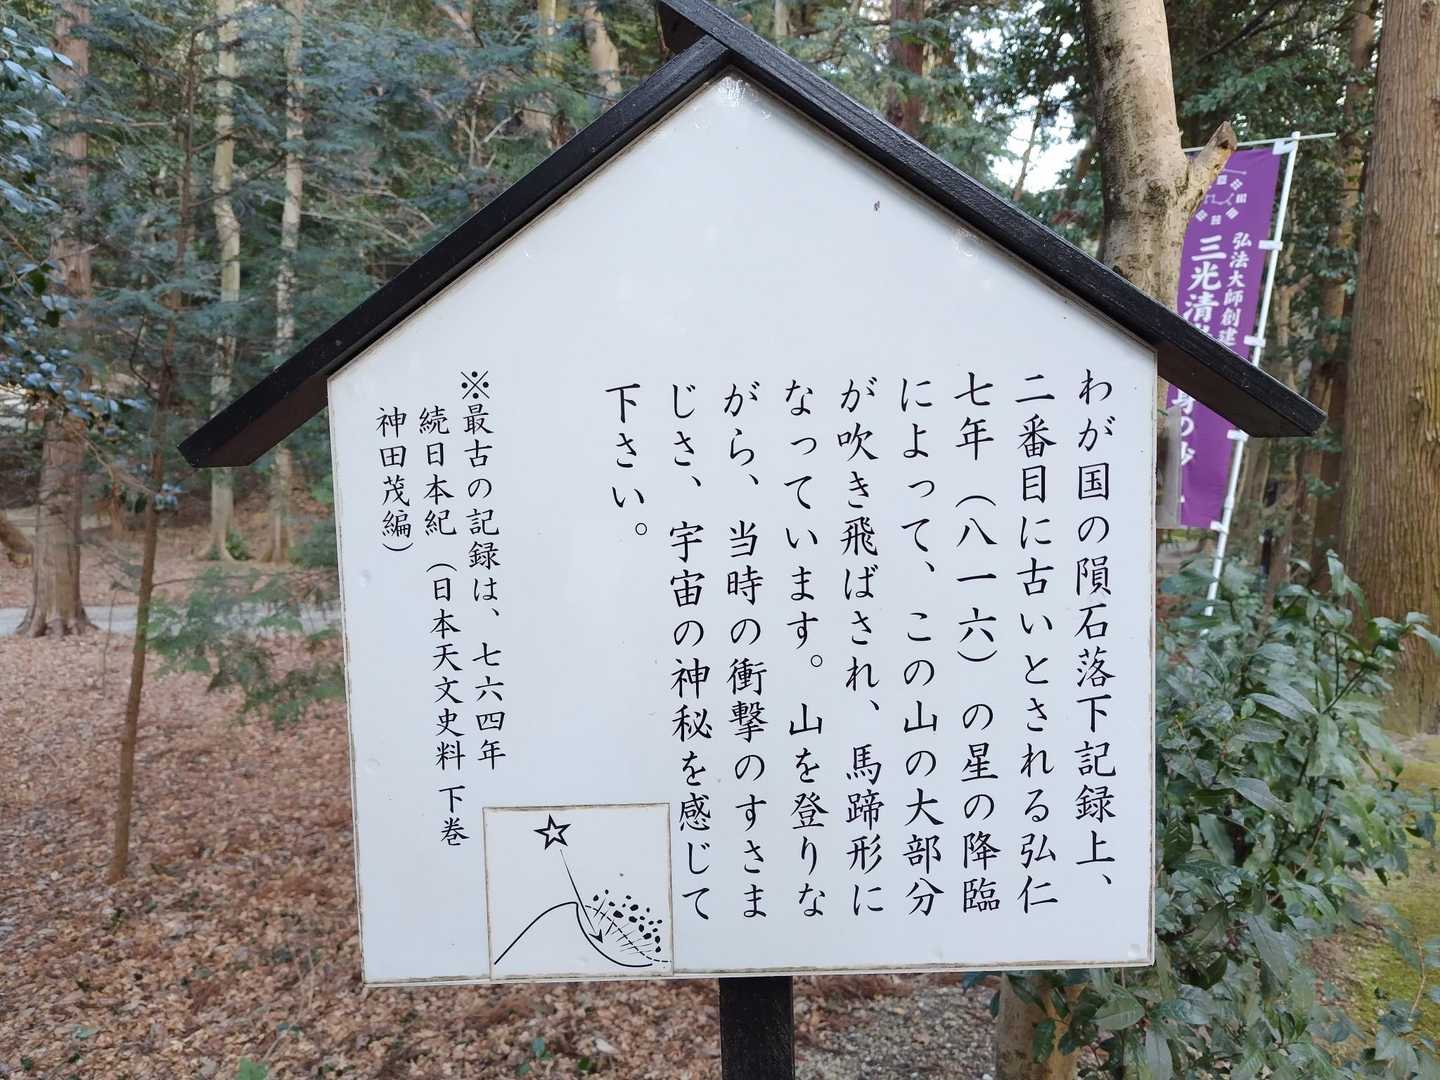 わが国の隕石落下記録上、
二番目に古いとされる弘仁
七年（八一六）の星の降臨
によって、この山の大部分
が吹き飛ばされ、馬蹄形に
なっています。山を登りな
がら、当時の衝撃のすさま
じさ、宇宙の神秘を感じて
下さい。
※最古の記録は、七六四年
続日本紀（日本天文史料 下巻
神田茂編）
弘法大師創建
三光清
身の